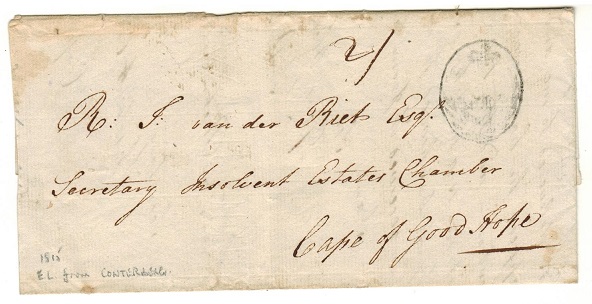 2/
R: J: van der Riet Esqr.
Secretary Insolvent Estates Chamber
Cape of Good Hope
1815
EL from